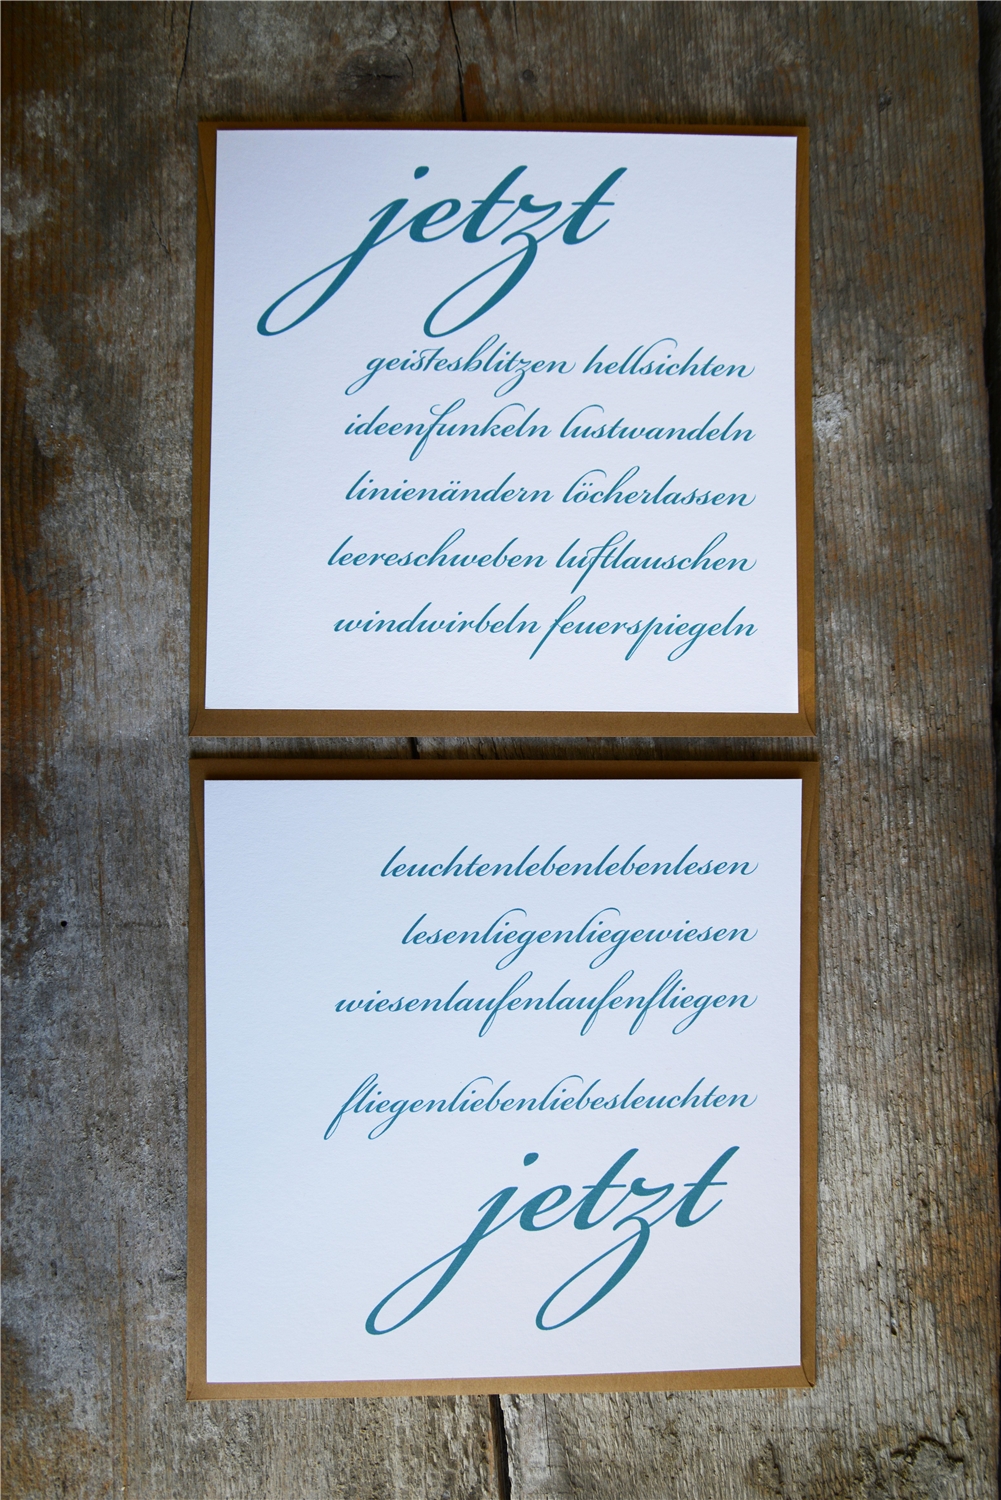 jetzt
geistesblitzen hellsichten
ideenfunkeln lustwandeln
linienändern löcherlassen
leereschweben luftlauschen
windwirbeln feuerspiegeln
leuchtenlebenlebenlesen
lesenliegenliegewiesen
wiesenlaufenlaufenfliegen
fliegenliebenliebesleuchten
jetzt